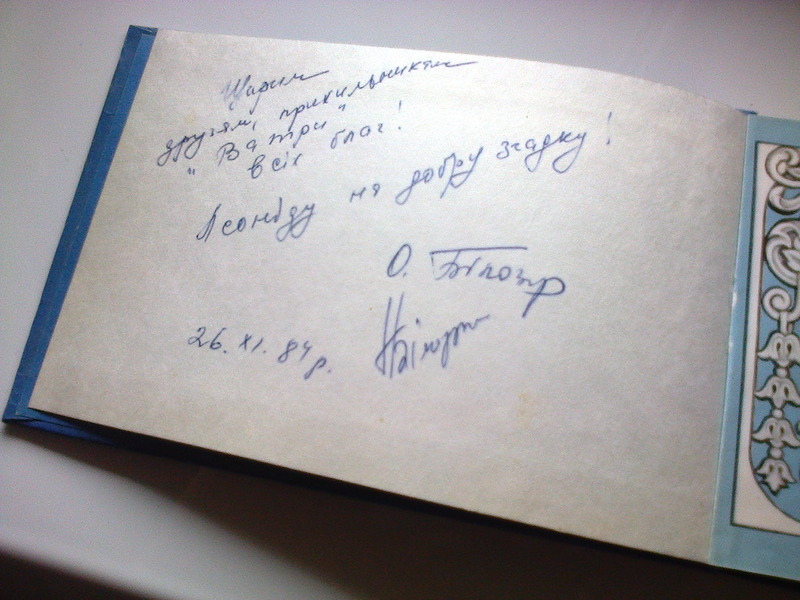 Щирим
друзям, прихильникам
"Ватри"
всіх благ!
Леоніду на добру згадку!
О. Білозір
26. XI. 84 р.